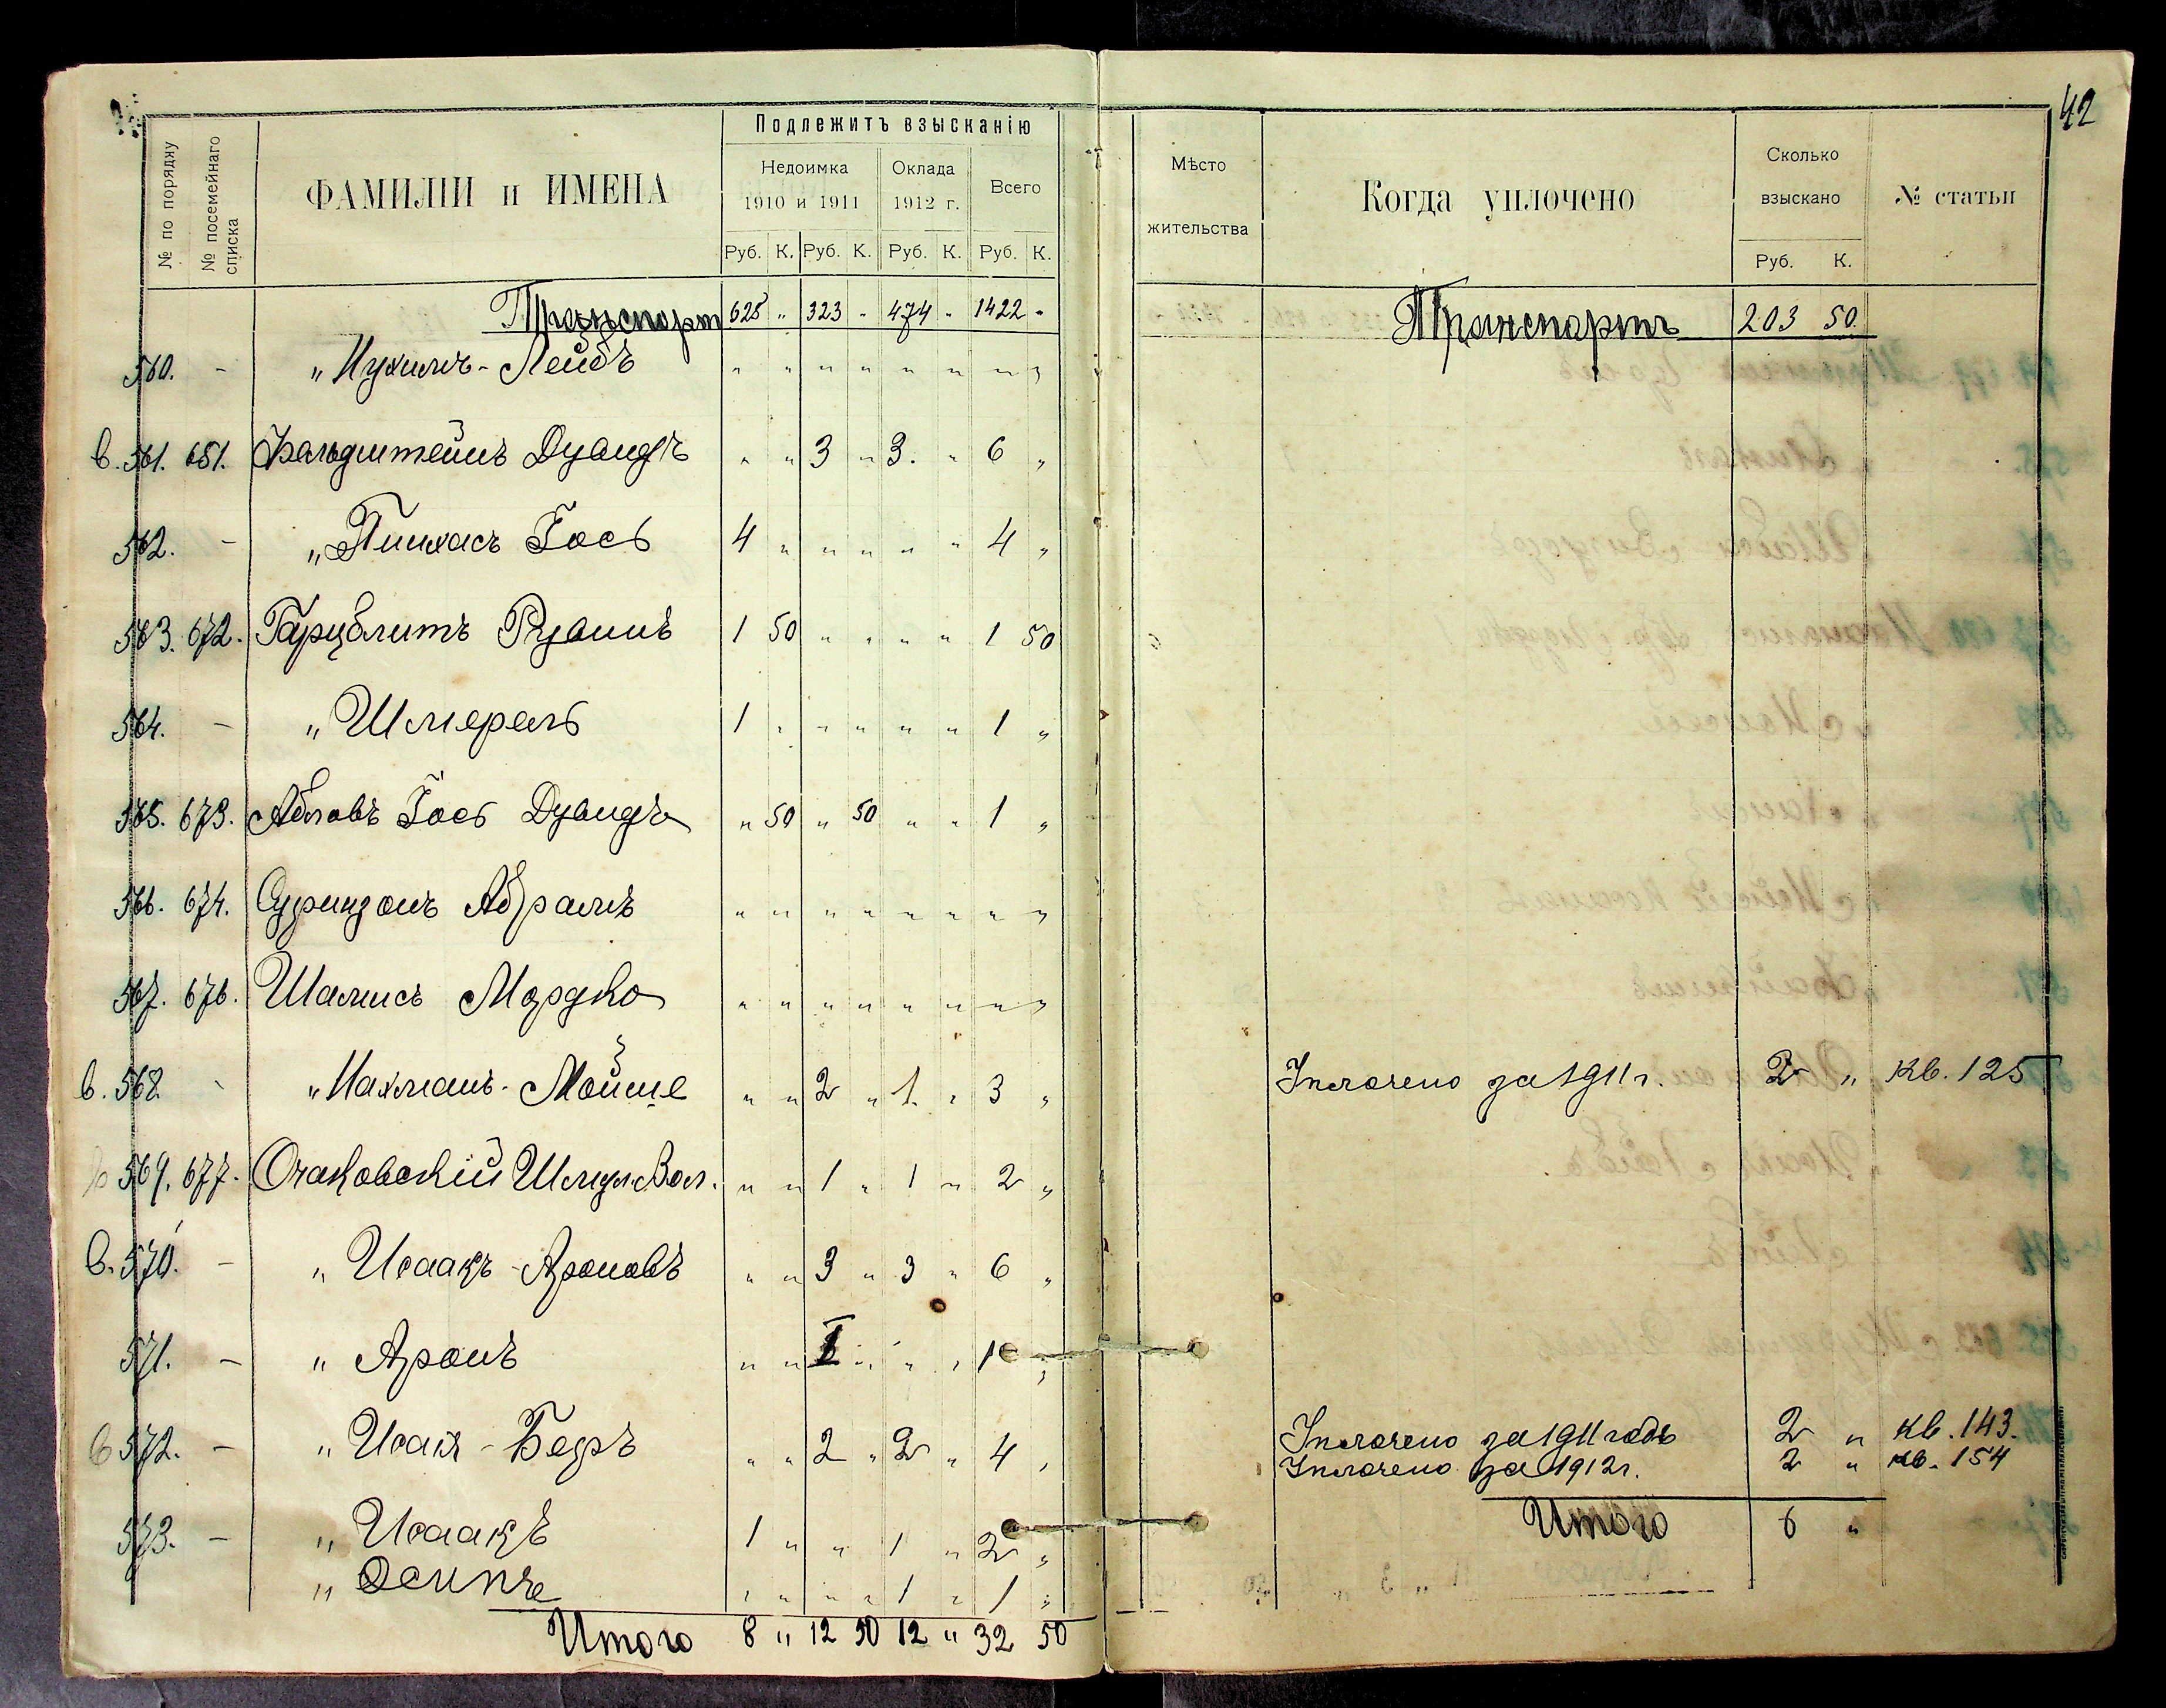 42
№ по порядку
№ посемейнаго списка
ФАМИЛІИ и ИМЕНА
Подлежитъ взысканію
Недоимка
1910 и 1911
Оклада
1912 г.
Всего
Руб. К. Руб. К. Руб. К. Руб. К.
Мѣсто
жительства
Когда уплочено
Сколько
взыскано
Руб. К.
№ статьи
Транспорт 628 „ 323 „ 474 „ 1422 „
Транспортъ 203 50
560. - „ Нухимъ-Лейбъ „ „ „ „ „ „ „ „
в. 561. 651. Вальдштейнъ Дувидъ „ „ 3 „ 3. „ 6 „
562. - „ Пинхасъ Іось 4 „ „ „ „ „ 4 „
563. 672. Гарцблитъ Рувинъ 1 50 „ „ „ „ 1 50
564. - „ Шмерель 1 „ „ „ „ „ 1 „
565. 673. Абловъ Іось Дувидъ „ 50 „ 50 „ „ 1 „
566. 674. Абрамъ „ „ „ „ „ „ „ „
567. 676. Шамисъ Мордко „ „ „ „ „ „ „ „
в. 568. - „ Нахманъ-Мойше „ „ 2 „ 1. „ 3 „
Уплочено за 1911 г. 2 „ кв. 125
в 569. 677. Очаковскій Шмул. Вол. „ „ 1 „ 1 „ 2 „
в. 570. - „ Исаакъ-Ароновъ „ „ 3 „ 3 „ 6 „
571. - „ Аронъ „ „ 1 „ „ „ 1 „
в 572. - „ Исаія-Беръ „ „ 2 „ 2 „ 4 „
Уплочено за 1911 годъ 2 „ кв. 143.
Уплочено за 1912 г. 2 „ кв. 154
Итого 6 „
573. - „ Исаакъ 1 „ „ 1 „ 2 „
„ Осипъ „ „ „ „ 1 „ 1 „
Итого 8 „ 12 50 12 „ 32 50